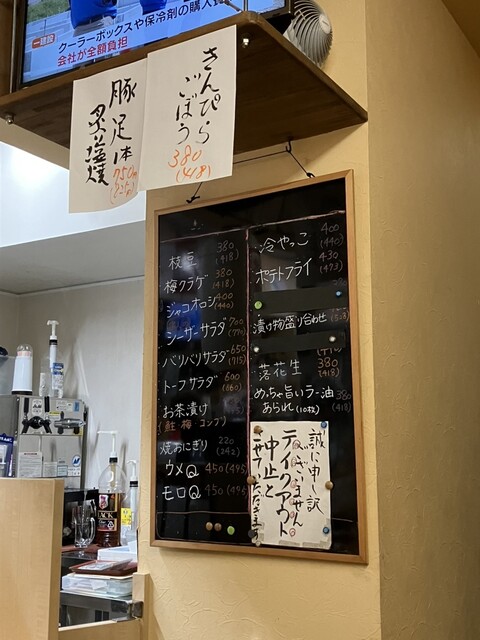 クーラーボックスや保冷剤の購入費
会社が全額負担
きんぴら
ごぼう
380
(418)
豚足一本
炙塩焼
750
枝豆 380
(418)
梅クラゲ 380
(418)
ジャコオロシ 400
(440)
シーザーサラダ 700
(770)
バリバリサラダ 650
(715)
トーフサラダ 600
(660)
お茶漬け
(鮭 梅 コンブ)
焼おにぎり 220
(242)
ウメQ 450(495)
モロQ 450(495)
冷やっこ 400
(440)
ポテトフライ 430
(473)
漬け物盛り合わせ
落花生 380
(418)
めっちゃ旨いラー油
あられ(10枚) 380
(418)
誠に申し訳
ございません
テイクアウト
中止と
させていただきます
BLACK